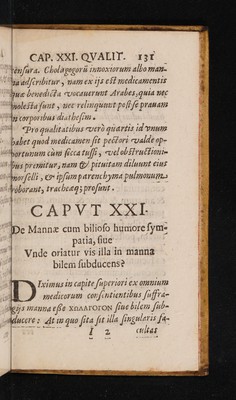 CAP. XXI. QVALIT. 131
censura. Chologogorũ innoxiorum albo man-
na adscribitur, nam ex ijs est medicamentis
quæ benedicta vocauerunt Arabes, quia nec
molesta sunt, nec relinquunt post se prauam
in corporibus diathesim.
Pro qualitatibus verò quartis id vnum
habet quod medicamen sit pectori valde op-
portunum cum sicca tussi, vel obstructioni-
bus premitur, nam & pituitam diluunt eius
morselli, & ipsum parenchyma pulmonum
roborant, tracheæq; prosunt.
CAPVT XXI.
De Mannæ cum bilioso humore sym-
patia, siue
Vnde oriatur vis illa in manna
bilem subducens?
DIximus in capite superiori ex omnium
medicorum consentientibus suffra-
gijs manna esse ΧΟΛΑΓΟΓΟΝ siue bilem sub-
ducere: At in quo sita sit illa singularis fa-
I 2 cultas